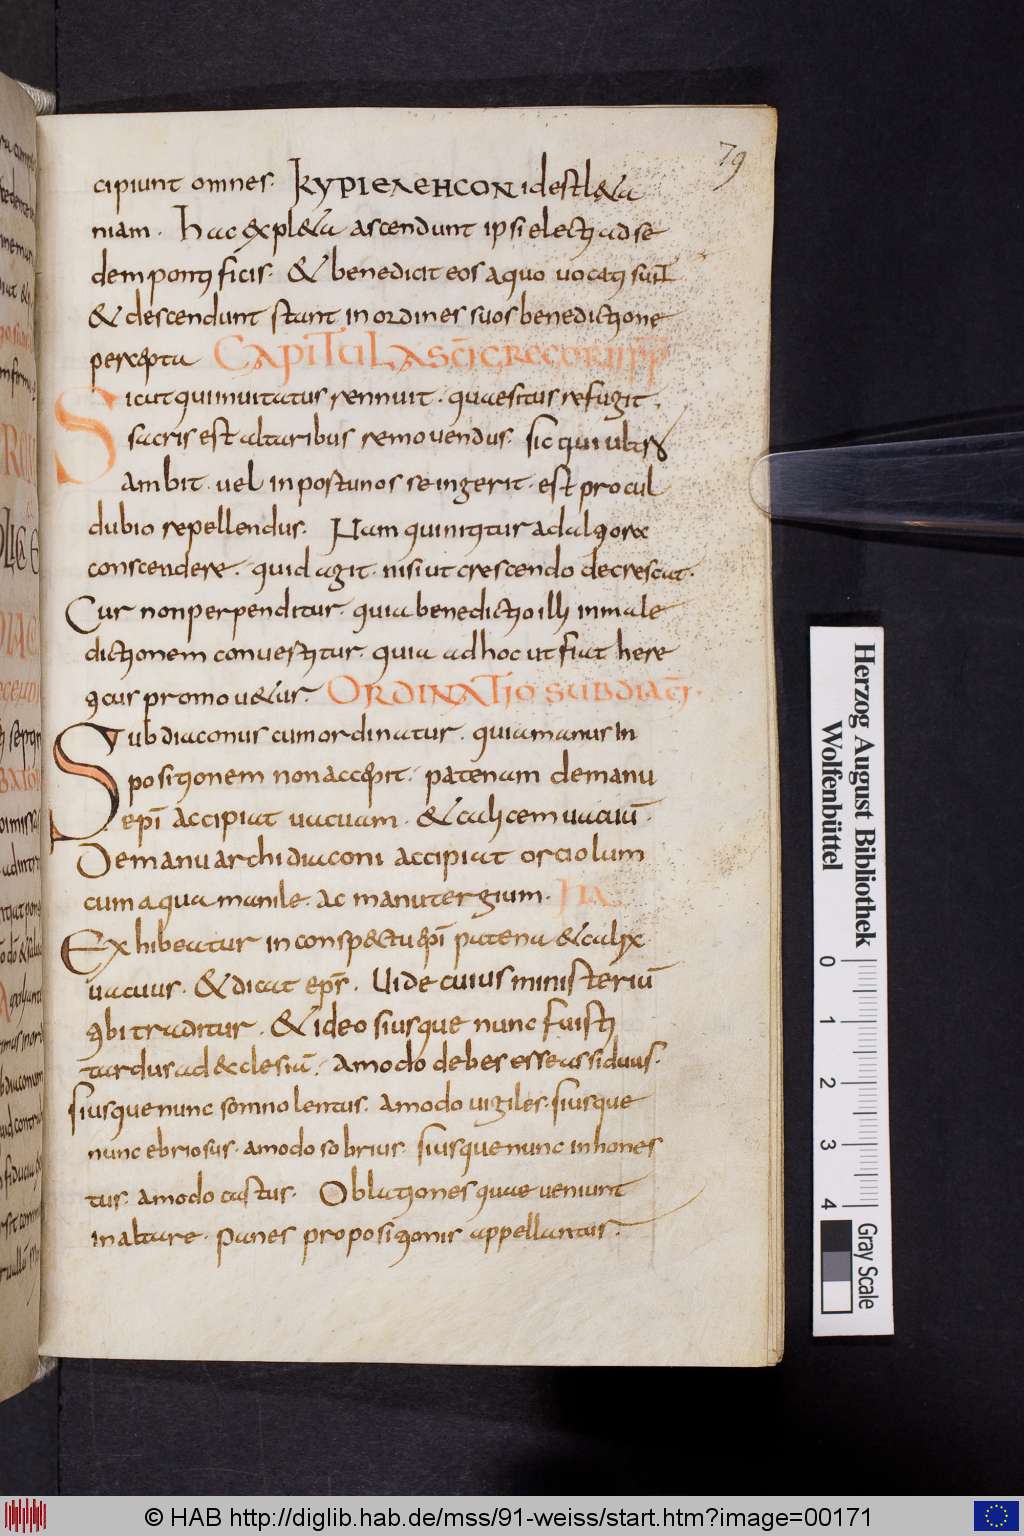 79
cipiunt omnes. kyrieλεHCON id est l&a
niam. hac expl&a ascendunt ipsi electi ad se
dem pontificis. & benedicit eos a quo vocati sunt
& descendunt stant in ordines suos benedictione
percepta CAPITULA SCI GREGORII PP
Sicut qui inuitatus rennuit. quaesitus refugit.
sacris est altaribus remouendus. sic qui ultro
ambit. uel inportunos se ingerit. est procul
dubio repellendus. Nam qui nititur ad altiora
conscendere. quid agit. nisi ut crescendo decrescat.
Cur non perpenditur. quia benedictio illi in male
dictionem convertitur. quia ad hoc ut fiat here
ticus promou&ur. ORDINATIO SUBDIACI.
Subdiaconus cum ordinatur. quia manus in
positionem non accepit. patenam de manu
epi accipiat uacuam. & calicem uacuū.
De manu archidiaconi accipiat orciolum
cum aqua manile. ac manutergium. ITA
Exhibeatur in conspectu epi patena & calix
uacuus. & dicat eps. Uide cuius ministeriū
tibi traditur. & ideo si usque nunc fuisti
tardus ad ecclesiā. amodo debes esse assiduus.
si usque nunc somnolentus. amodo uigiles. si usque
nunc ebriosus. amodo sobrius. si usque nunc inhones
tus. amodo castus. Oblationes quae ueniunt
in altare. panes propositionis appellantur.
Herzog August Bibliothek
Wolfenbüttel
0 1 2 3 4
Gray Scale
© HAB http://diglib.hab.de/mss/91-weiss/start.htm?image=00171